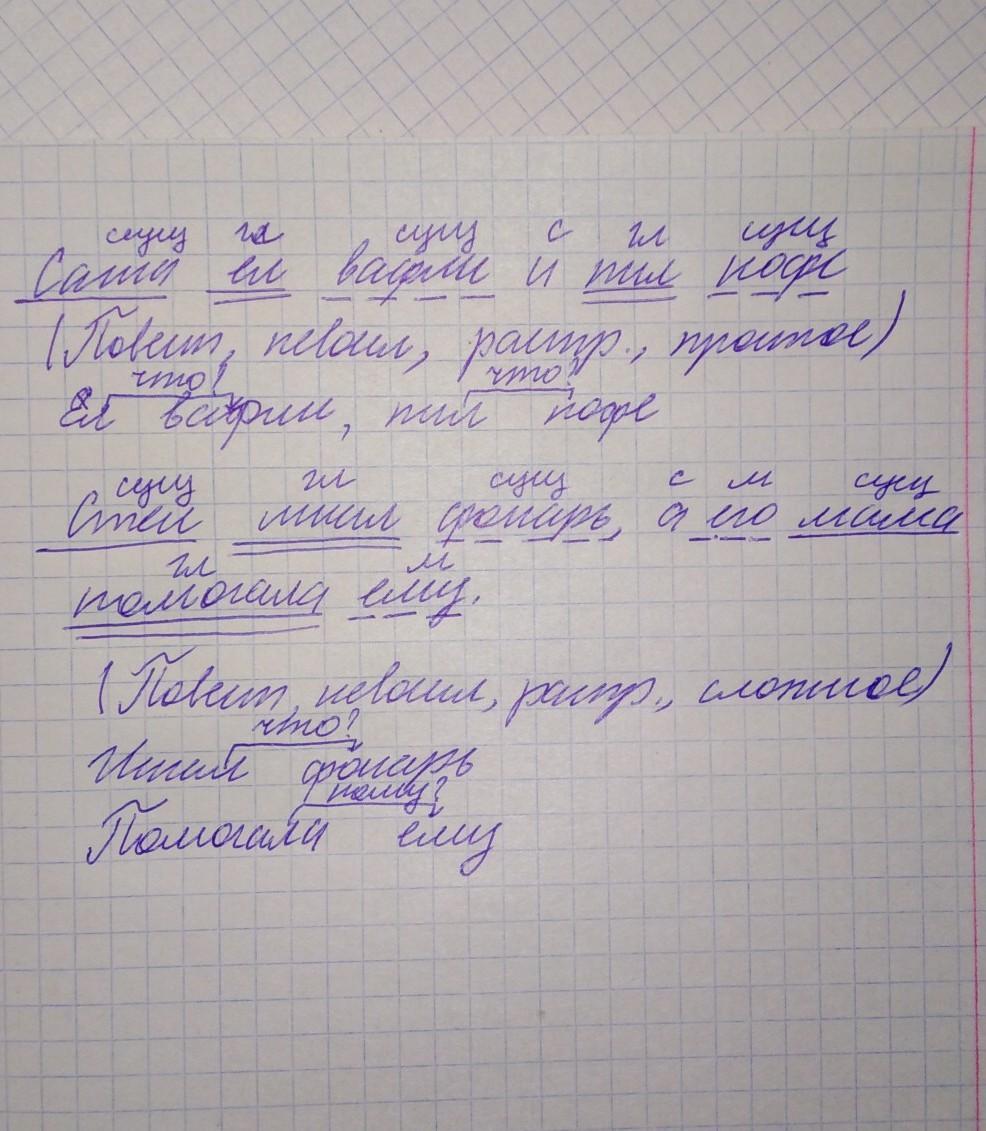 сущ гл сущ с гл сущ
Саша ел вафли и пил кофе
(Повест, невоскл, распр., простое)
что? что?
Ел вафли, пил кофе
сущ гл сущ с м сущ
Стен чинил фонарь, а его мама
гл м
помогала ему.
(Повест, невоскл, распр., сложное)
что?
Чинил фонарь
кому?
Помогала ему